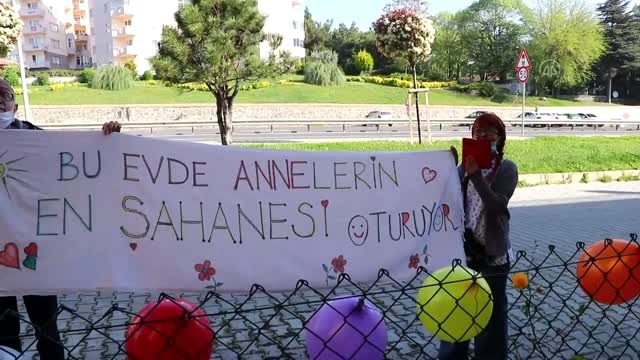 BU EVDE ANNELERİN
EN SAHANESİ OTURUYOR
50